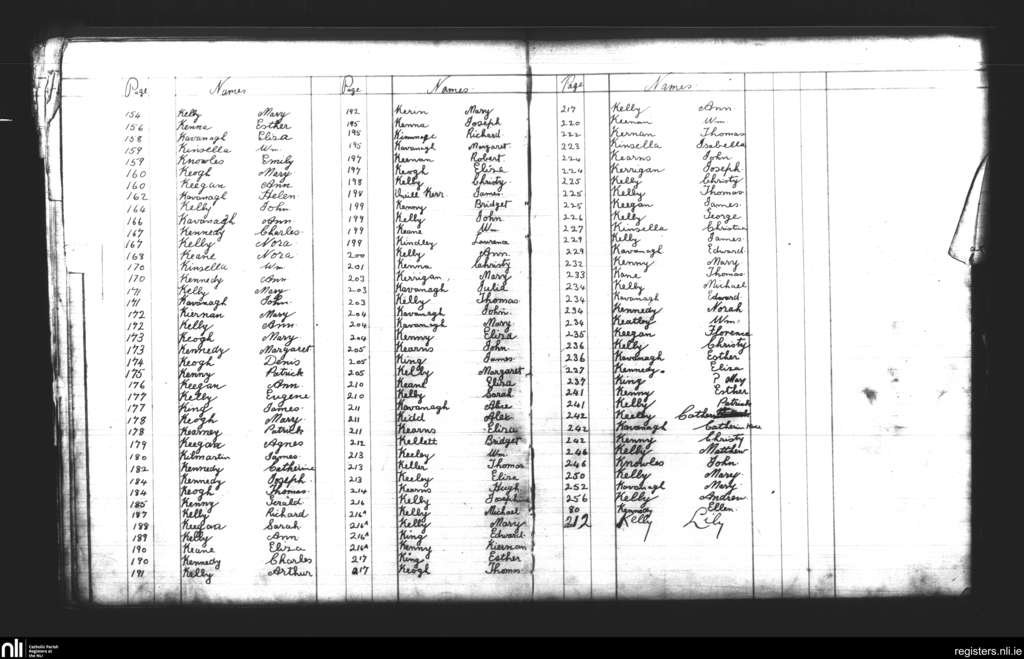 Page Names
154 Kelly Mary
156 Kenna Esther
158 Kavanagh Eliza
159 Kinsella Wm.
159 Knowles Emily
160 Keogh Mary
160 Keegan Ann
162 Kavanagh Helen
164 Kelly John
166 Kavanagh Ann
167 Kennedy Charles
167 Kelly Nora
168 Keane Nora
170 Kinsella Wm
170 Kennedy Ann
171 Kelly Mary
171 Kavanagh John
172 Kiernan Mary
172 Kelly Ann
173 Keogh Mary
173 Kennedy Margaret
174 Keogh Denis
175 Kenny Patrick
176 Keegan Ann
177 Kelly Eugene
177 King James
178 Keogh Mary
178 Kearney Patrick
179 Keegan Agnes
180 Kilmartin James
182 Kennedy Catherine
184 Kennedy Joseph
184 Keogh Thomas
185 Kenny Gerald
187 Kelly Richard
188 Keegan Sarah
189 Kelly Ann
190 Keane Eliza
190 Kennedy Charles
191 Kelly Arthur
Page Names
192 Kerin Mary
195 Kenna Joseph
195 Richard
195 Kavanagh Margaret
197 Keenan Robert
197 Keogh Eliza
198 Kelly Christy
198 Kerr James
199 Kenny Bridget "
199 Kelly John
199 Keane Wm
199 Kindley Laurence
200 Kelly Ann
201 Kenna Christy
203 Kerrigan Mary
203 Kavanagh Julia
203 Kelly Thomas
204 Kavanagh John
204 Kavanagh Mary
204 Kenny Eliza
205 Kearns John
205 King James
205 Kelly Margaret
210 Keane Eliza
210 Kelly Sarah
211 Kavanagh Alice
211 Kidd Alex
211 Kearns Eliza
212 Kellett Bridget
213 Keeley Wm
213 Keller Thomas
213 Keeley Eliza
214 Kearns Hugh
216 Kelly Joseph
216A Kelly Michael
216A Kelly Mary
216A King Edward
216A Kenny Kiernan
217 King Esther
217 Keogh Thomas
Page Names
217 Kelly Ann
220 Keenan Wm
222 Kernan Thomas
223 Kinsella Isabella
224 Kearns John
224 Kerrigan Joseph
225 Kelly Christy
225 Kelly Thomas
225 Keegan James
226 Kelly George
227 Kinsella Christina
229 Kelly James
229 Kavanagh Edward
232 Kenny Mary
233 Kane Thomas
234 Kelly Michael
234 Kavanagh Edward
234 Kennedy Norah
234 Keatley Wm.
235 Keegan Florence
236 Kelly Christy
236 Kavanagh Esther
227 Kennedy Eliza
237 King P Mary
241 Kenny Esther
241 Kelly Patrick
242 Keeley
242 Kavanagh
242 Kenny Christy
246 Kelly Matthew
246 Knowles John
250 Kelly Mary
252 Kavanagh Mary
256 Kelly Andrew
80 Kennedy Ellen
212 Kelly Lily
nli Catholic Parish
Registers at
the NLI
registers.nli.ie